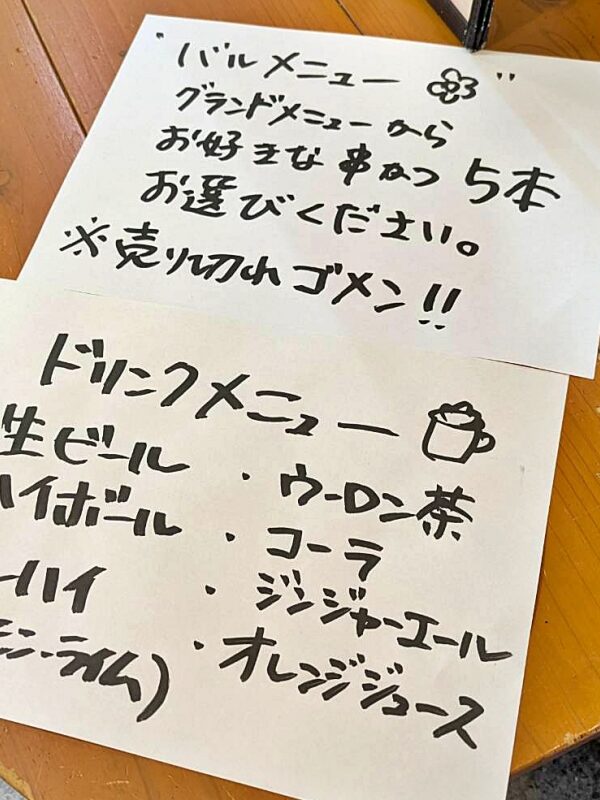 "バルメニュー"
グランドメニューから
お好きな串かつ 5本
お選びください。
※売り切れゴメン!!
ドリンクメニュー
生ビール
・ウーロン茶
ハイボール
・コーラ
ーハイ
・ジンジャーエール
モン・ライム)
・オレンジジュース